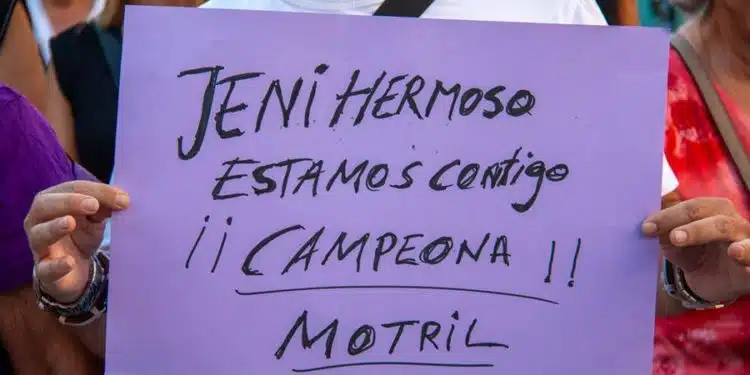 JENI HERMOSO
ESTAMOS CONTIGO
¡¡ CAMPEONA !!
MOTRIL